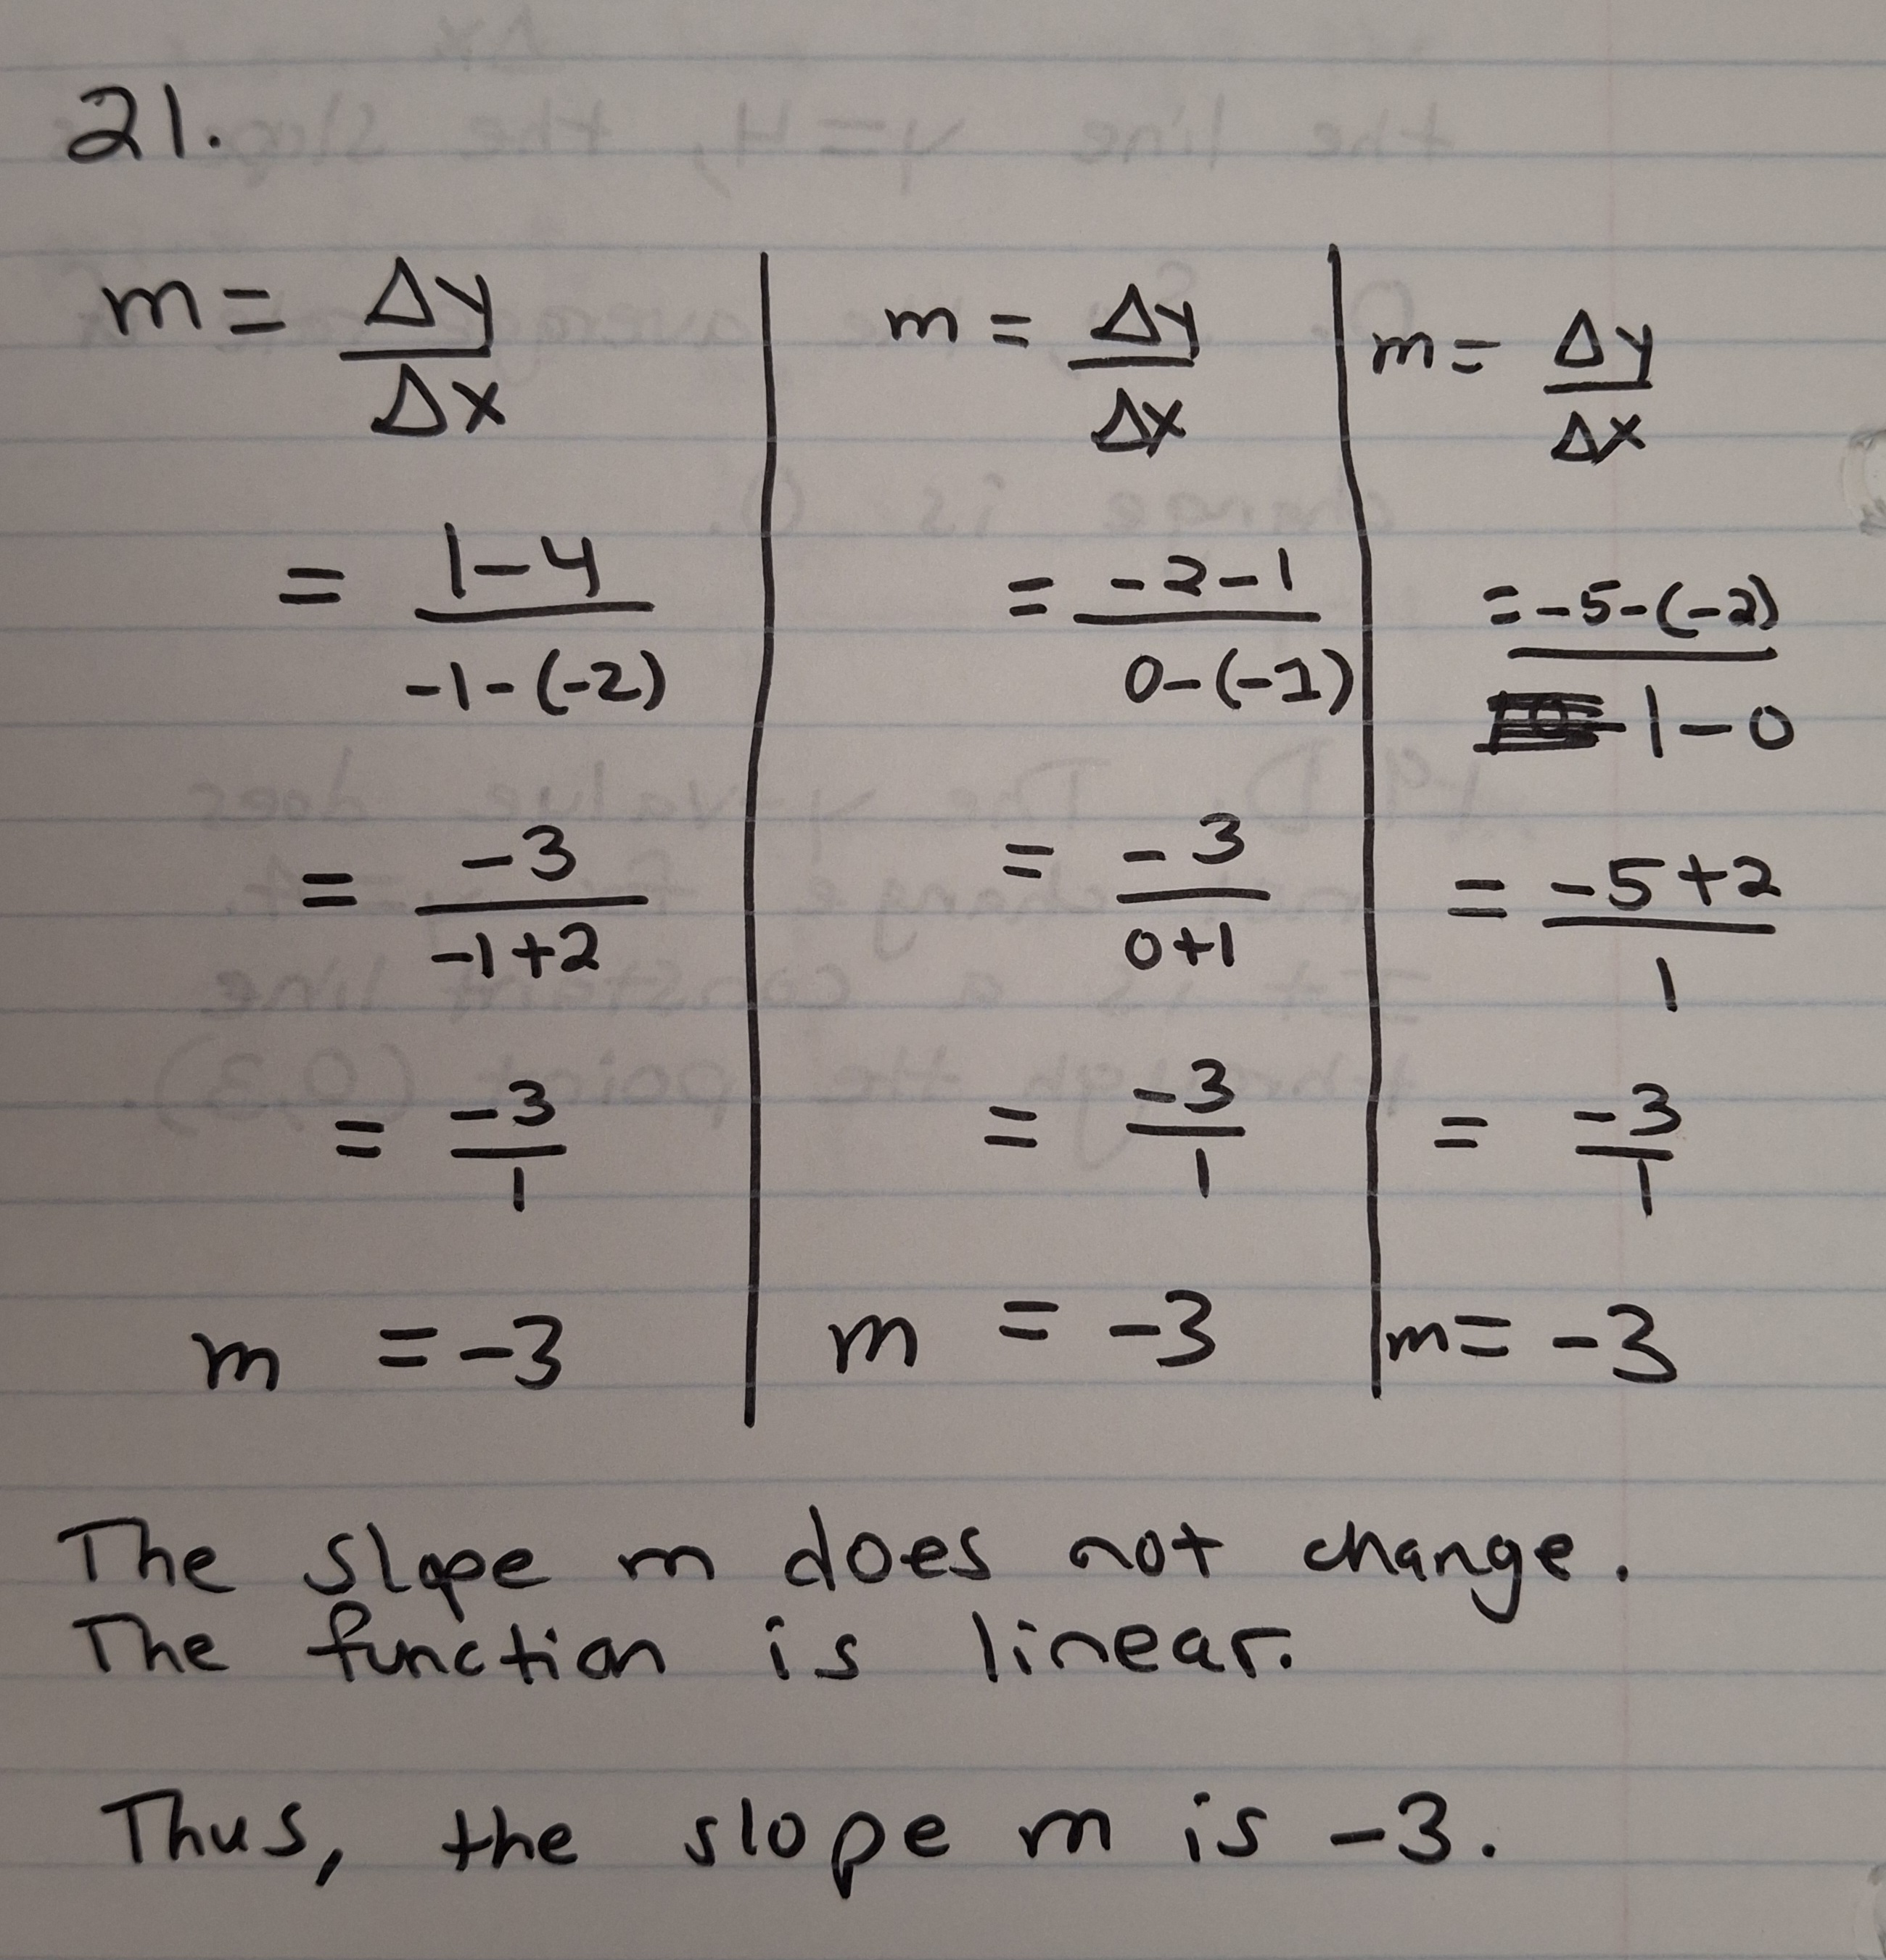 21.
m = Δy/Δx
= 1-4/-1-(-2)
= -3/-1+2
= -3/1
m = -3
m = Δy/Δx
= -2-1/0-(-1)
= -3/0+1
= -3/1
m = -3
m = Δy/Δx
= -5-(-2)/1-0
= -5+2/1
= -3/1
m = -3
The slope m does not change.
The function is linear.
Thus, the slope m is -3.